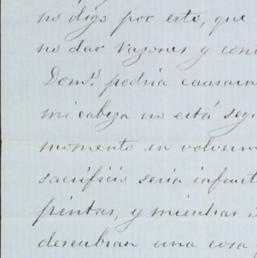 no digo por esto, que
no dar razones y con
Dom.º podría causar
mi cabeza no está seg
momento en volverm
sacrificio seria infruct
pintas, y mientras
descubran una cosa